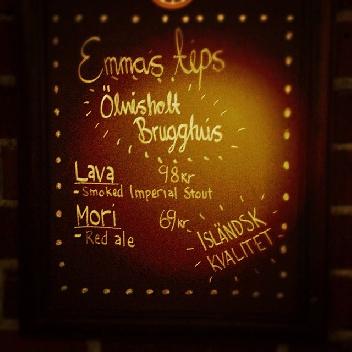 Emmas tips
Ölvisholt
Brugghus
Lava 98kr
- Smoked Imperial Stout
Mori 69kr
- Red ale
ISLÄNDSK
KVALITET